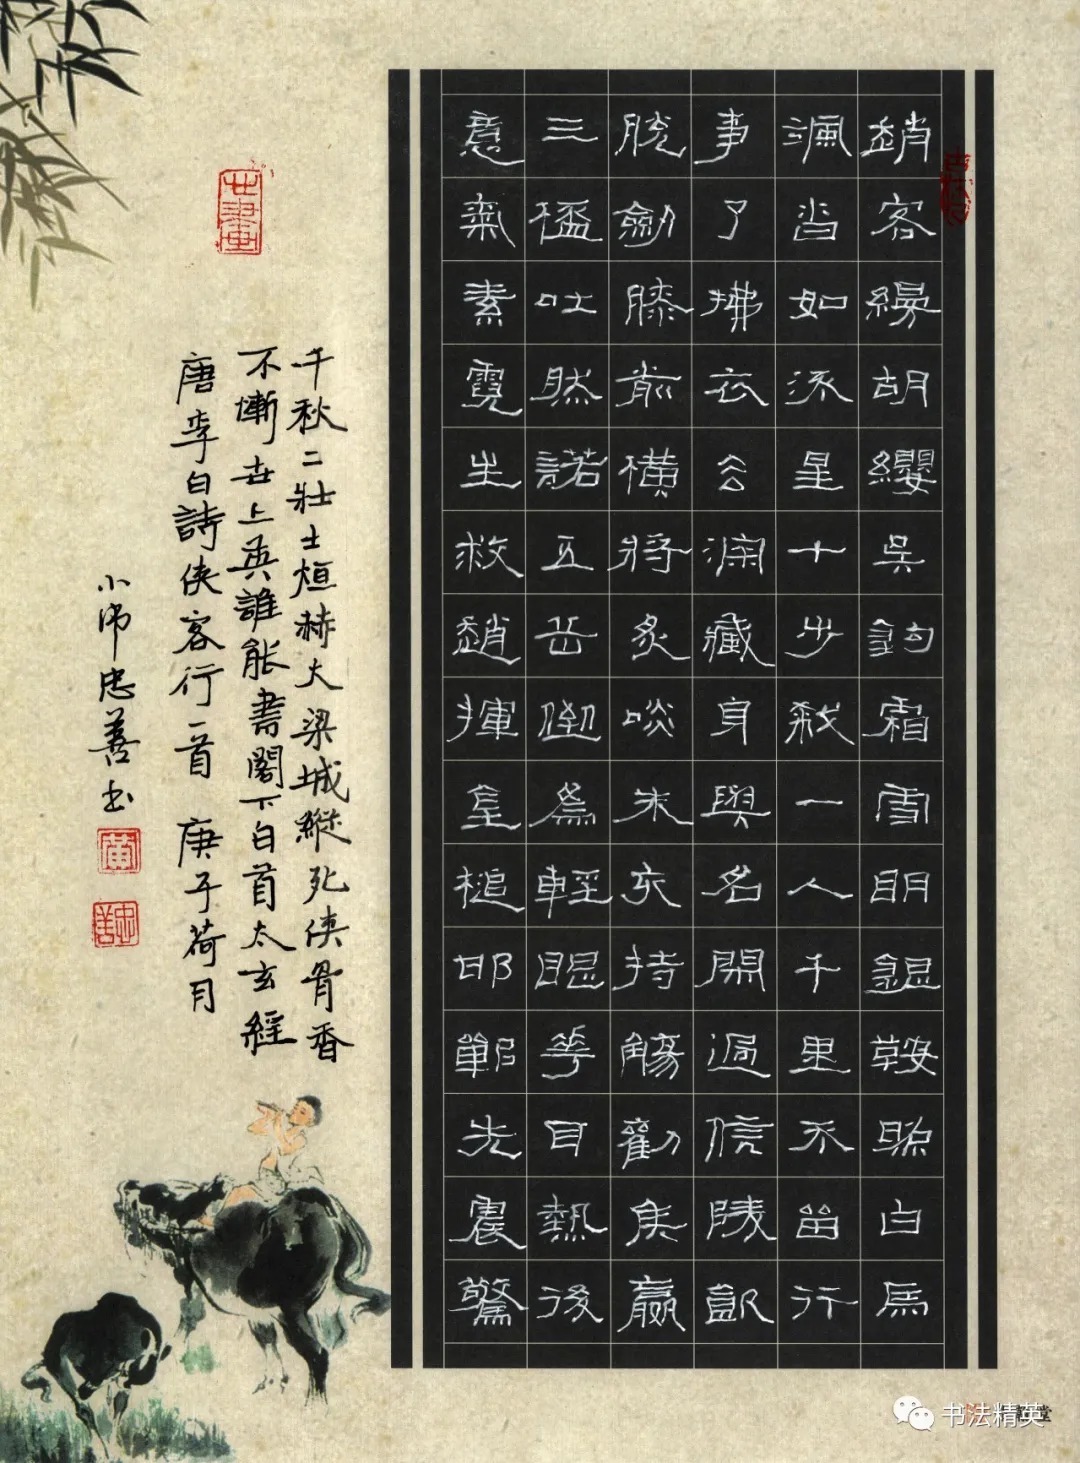 趙客縵胡纓吳鈎霜雪明銀鞍照白馬
颯沓如流星十步殺一人千里不留行
事了拂衣去深藏身與名閑過信陵飲
脫劍膝前橫將炙啖朱亥持觴勸侯嬴
三杯吐然諾五岳倒為輕眼花耳熱後
意氣素霓生救趙揮金槌邯鄲先震驚
千秋二壯士烜赫大梁城縱死俠骨香
不慚世上英誰能書閣下白首太玄經
唐李白詩俠客行一首 庚子荷月
小沛忠善书
黃
忠善
书法精英